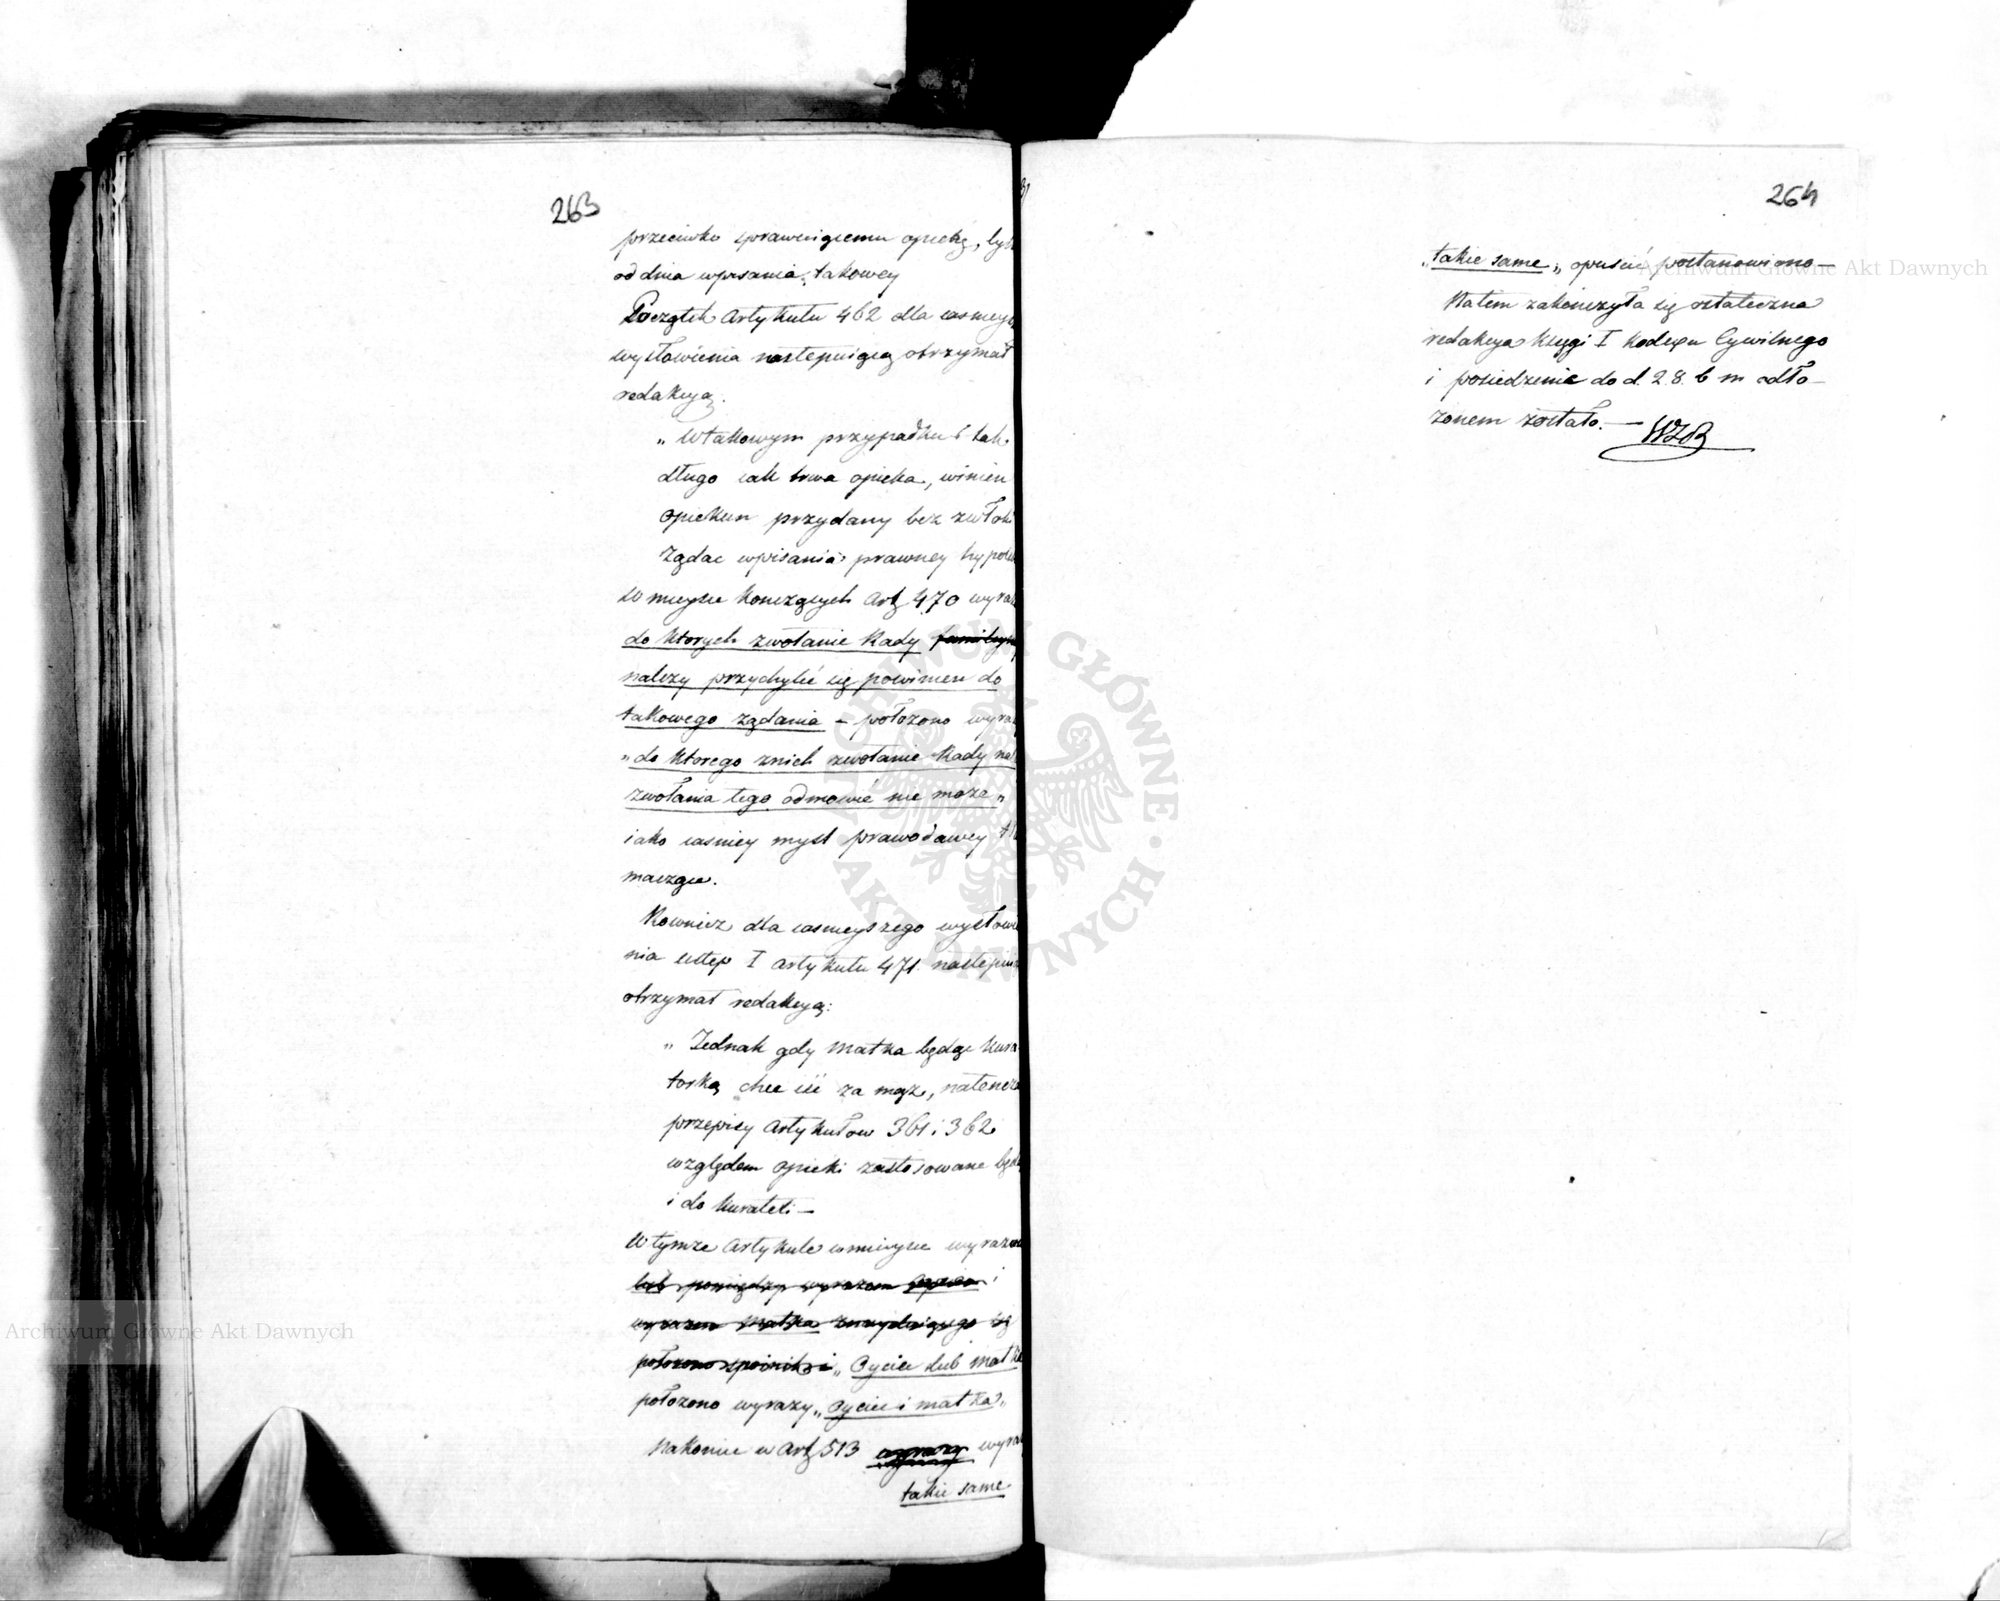 263
przeciwko sprawuiącemu opiekę, tylko
od dnia wpisania takowey
Początek Artykułu 462 dla iasnieysz
wysłowienia następuiącą otrzymał
redakcyą.
„Wtakowym przypadku i tak
długo iak trwa opieka, winien
opiekun przydany bez zwłoki
żądac wpisania prawney hypote
w mieysce konczących Art 470 wyra
do ktorych zwołanie Rady familyiney
należy przychylić się powinien do
takowego żądania – położono wyra
„do ktorego znich zwołanie Rady nal
zwołania tego odmówić nie może„
iako iasniey mysl prawodawcy tło
maczące.
Rownież dla iasnieyszego wysłowie
nia ustęp I Artykułu 471. następuią
otrzymał redakcyą:
„Jednak gdy matka będąc kura
torką chce iść za mąż, natencza
przepisy Artykułow 361 i 362
względem opieki zastosowane będą
i do kurateli –
W tymże Artykule wmieysce wyrazow
lub pomiędzy wyrazem Oyciec i
wyrazem Matka znayduiącego się
położono spoinik i „Oyciec lub matka
położono wyrazy „Oyciec i matka„
Nakoniec w Art 513 wyrazy wyra
takie same
264
„takie same„ opuścić postanowiono –
Natem zakończyła się ostateczna
redakcya Księgi I Kodexu Cywilnego
i posiedzenie do d. 28. b m odło–
żonem zostało. –
Archiwum Główne Akt Dawnych
Archiwum Główne Akt Dawnych
ARCHIWUM GŁÓWNE · AKT DAWNYCH ·